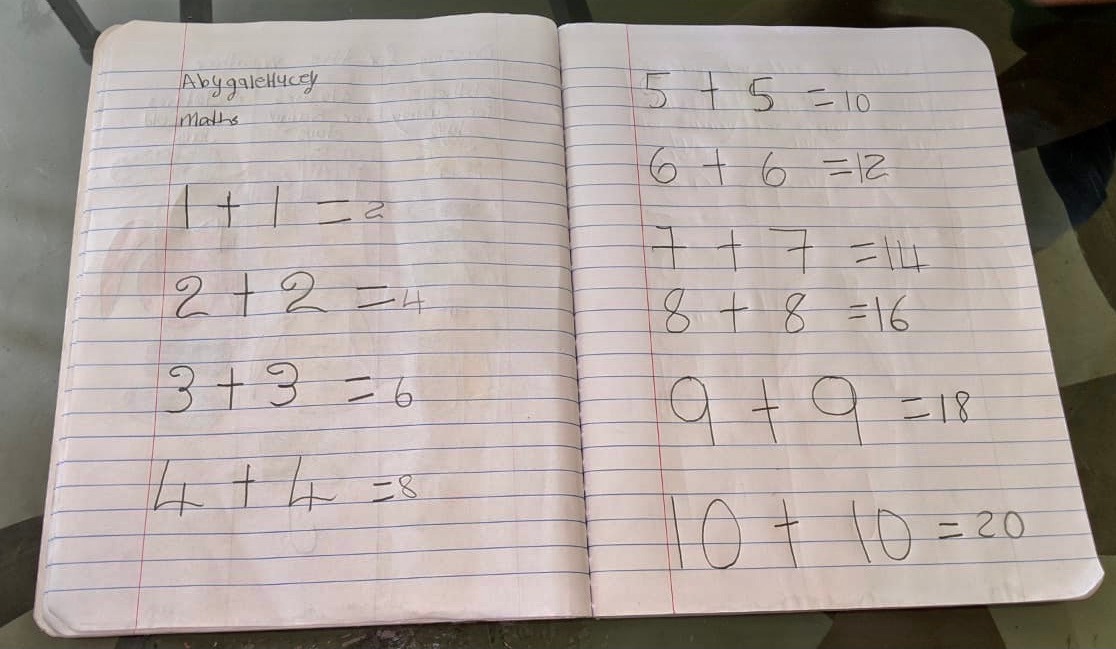 Maths
1 + 1 = 2
2 + 2 = 4
3 + 3 = 6
4 + 4 = 8
5 + 5 = 10
6 + 6 = 12
7 + 7 = 14
8 + 8 = 16
9 + 9 = 18
10 + 10 = 20